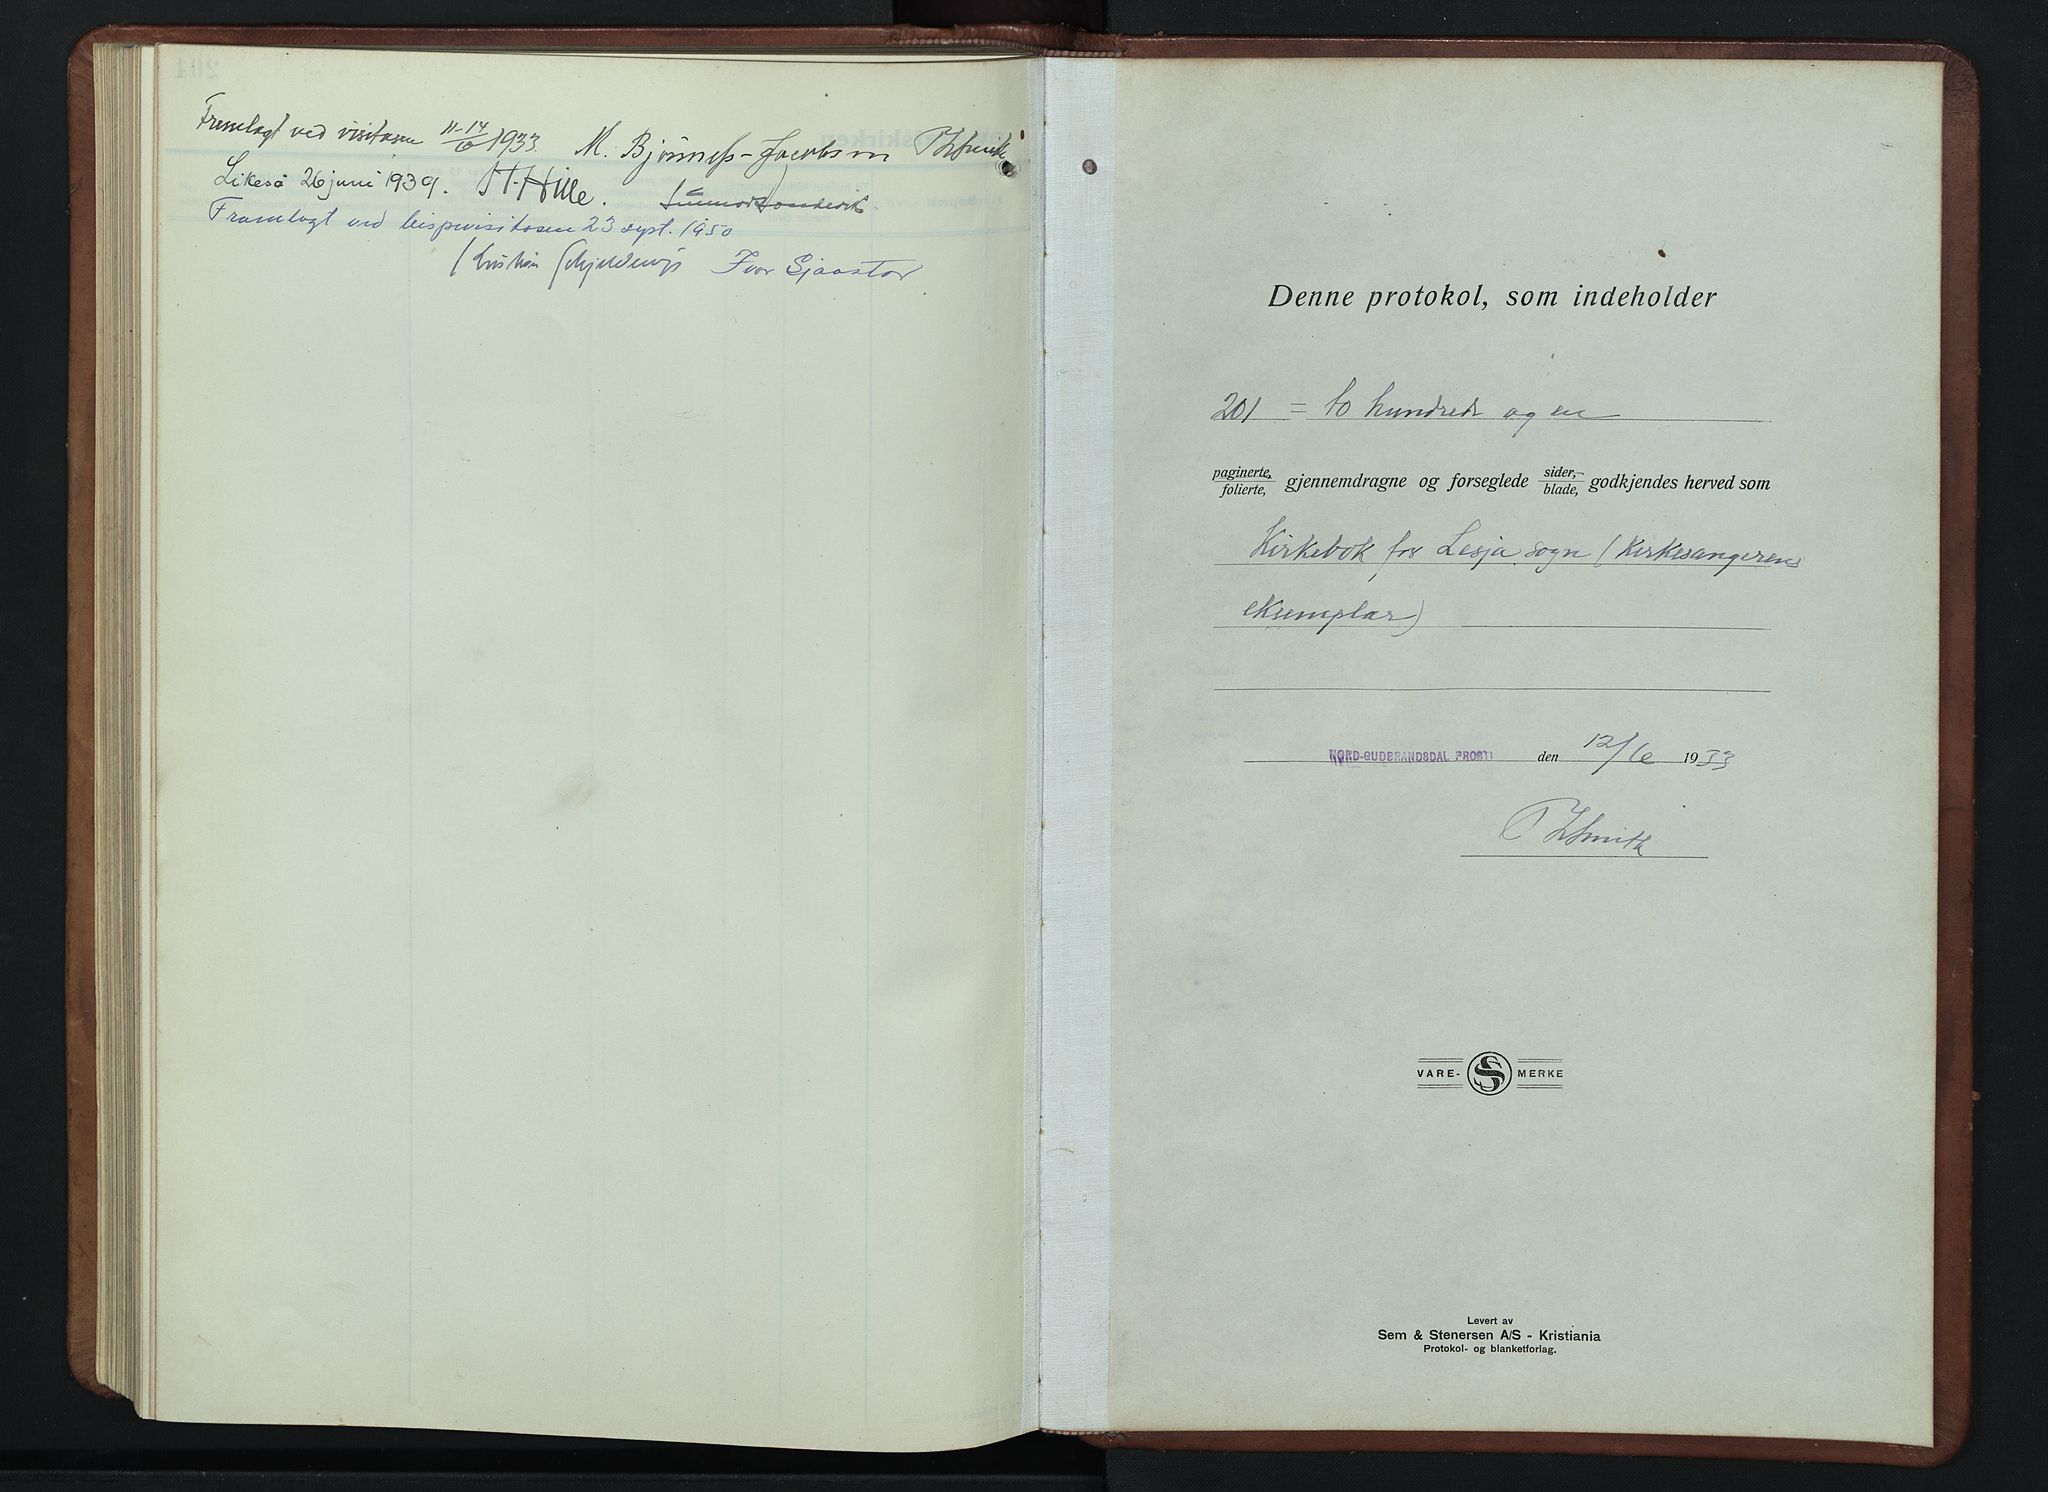 Fremlagt ved visitasen 11-14/6 1933 M. Bjønness-Jacobsen
Likeså 26 juni 1939. H. Hille.
Framlagt ved bispevisitasen 23 sept. 1950
Kristian Schjelderup Ivar Sjaastad
Denne protokol, som indeholder
201 = to hundrede og en
paginerte, folierte, gjennemdragne og forseglede sider,- blade, godkjendes herved som
Kirkebok for Lesja sogn (Kirkesangerens
eksemplar)
NORD-GUDBRANDSDAL PROSTI den 12/6 1933
Smith
VARE- S MERKE
Levert av
Sem & Stenersen A/S - Kristiania
Protokol- og blanketforlag.